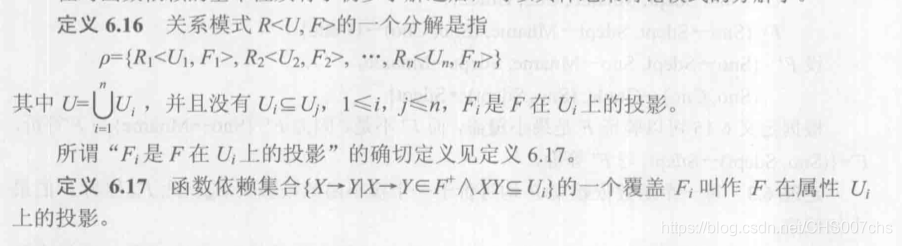 定义 6.16 关系模式 R<U, F>的一个分解是指
ρ={R₁<U₁, F₁>, R₂<U₂, F₂>, …, Rₙ<Uₙ, Fₙ>}
其中 U=⋃ᵢ₌₁ⁿUᵢ，并且没有 Uᵢ⊆Uⱼ，1≤i, j≤n，Fᵢ是 F 在 Uᵢ上的投影。
所谓“Fᵢ是 F 在 Uᵢ上的投影”的确切定义见定义 6.17。
定义 6.17 函数依赖集合{X→Y|X→Y∈F⁺∧XY⊆Uᵢ}的一个覆盖 Fᵢ叫作 F 在属性 Uᵢ
上的投影。
https://blog.csdn.net/CHS007chs